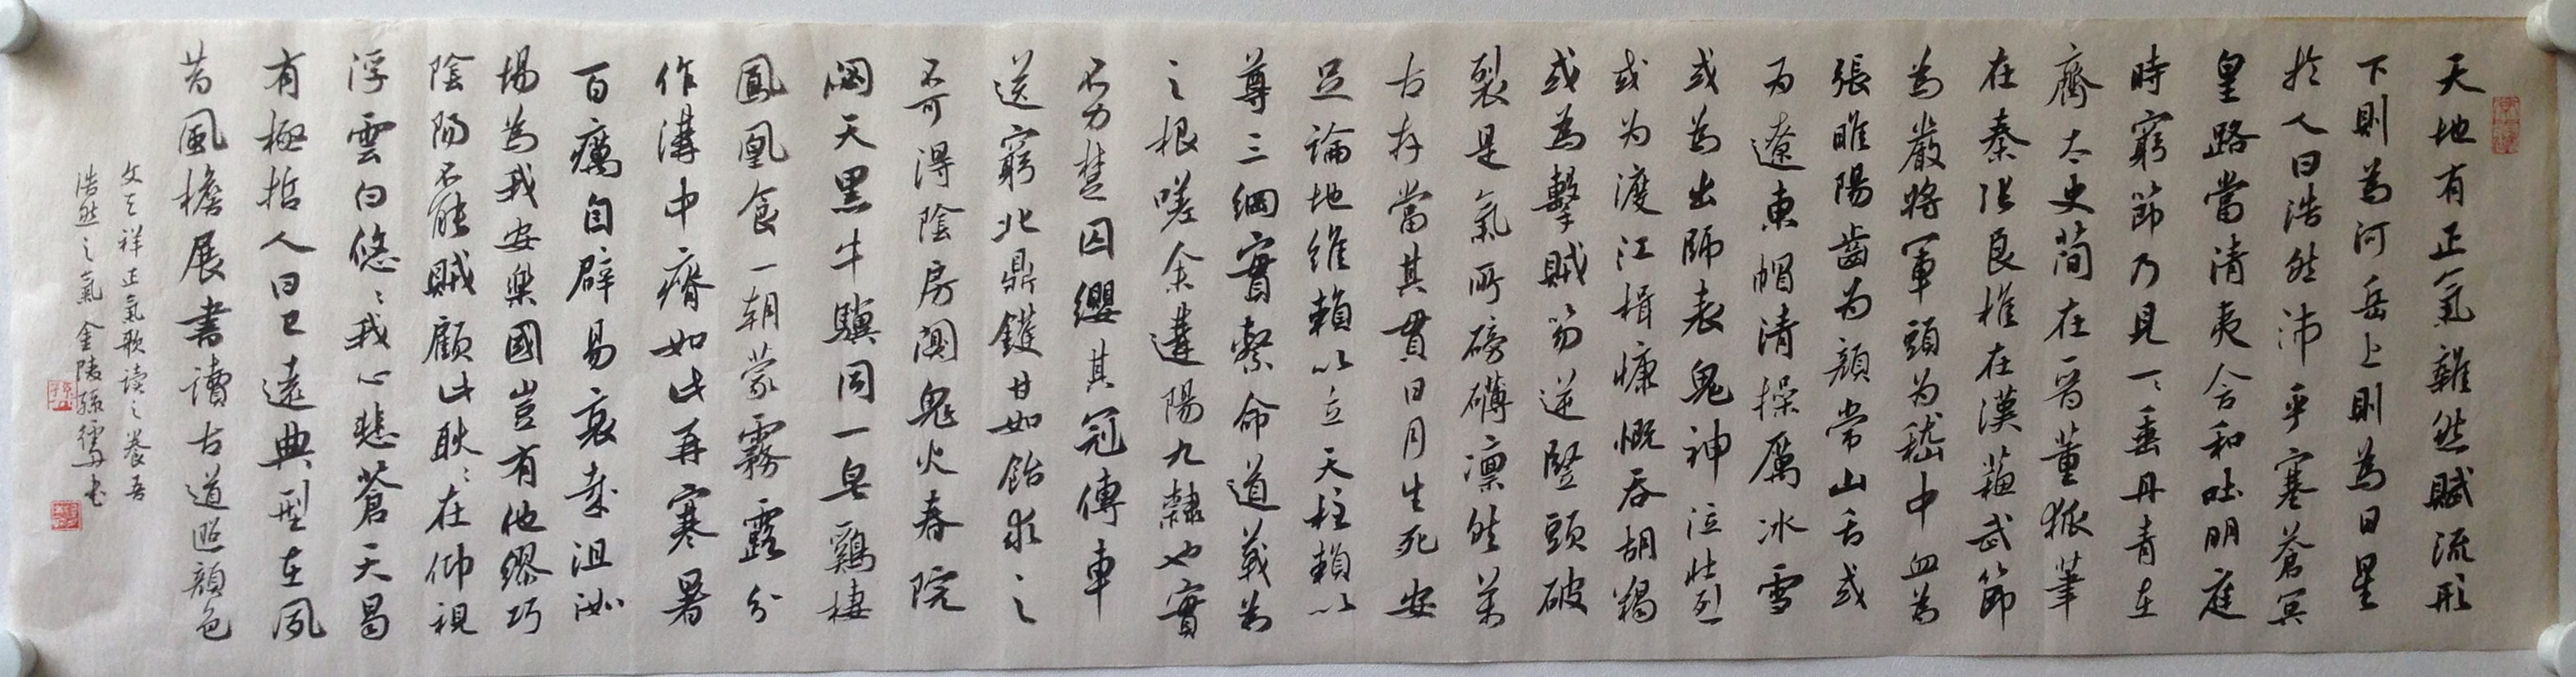 天地有正氣雜然賦流形
下則為河岳上則為日星
於人曰浩然沛乎塞蒼冥
皇路當清夷含和吐明庭
時窮節乃見一一垂丹青在
齊太史簡在晉董狐筆
在秦張良椎在漢蘇武節
為嚴將軍頭为嵇中血為
張睢陽齒为顏常山舌或
为遼東帽清操厲冰雪
或為出師表鬼神泣壯烈
或为渡江楫慷慨吞胡羯
或為擊賊笏逆豎頭破
裂是氣所磅礴凛然萬
古存當其貫日月生死安
足論地維賴以立天柱賴以
尊三綱實繫命道義为
之根嗟余遘陽九隸也實
不力楚囚纓其冠傳車
送窮北鼎鑊甘如飴求之
不可得陰房闃鬼火春院
閟天黑牛驥同一皂鷄棲
鳳凰食一朝蒙霧露分
作溝中瘠如此再寒暑
百癘自辟易哀哉沮洳
場為我安樂國豈有他繆巧
陰陽不能賊顧此耿耿在仰視
浮雲白悠悠我心悲蒼天曷
有極哲人日已遠典型在夙
昔風檐展書讀古道照顏色
文天祥正氣歌读之養吾
浩然之氣 金陵孫書